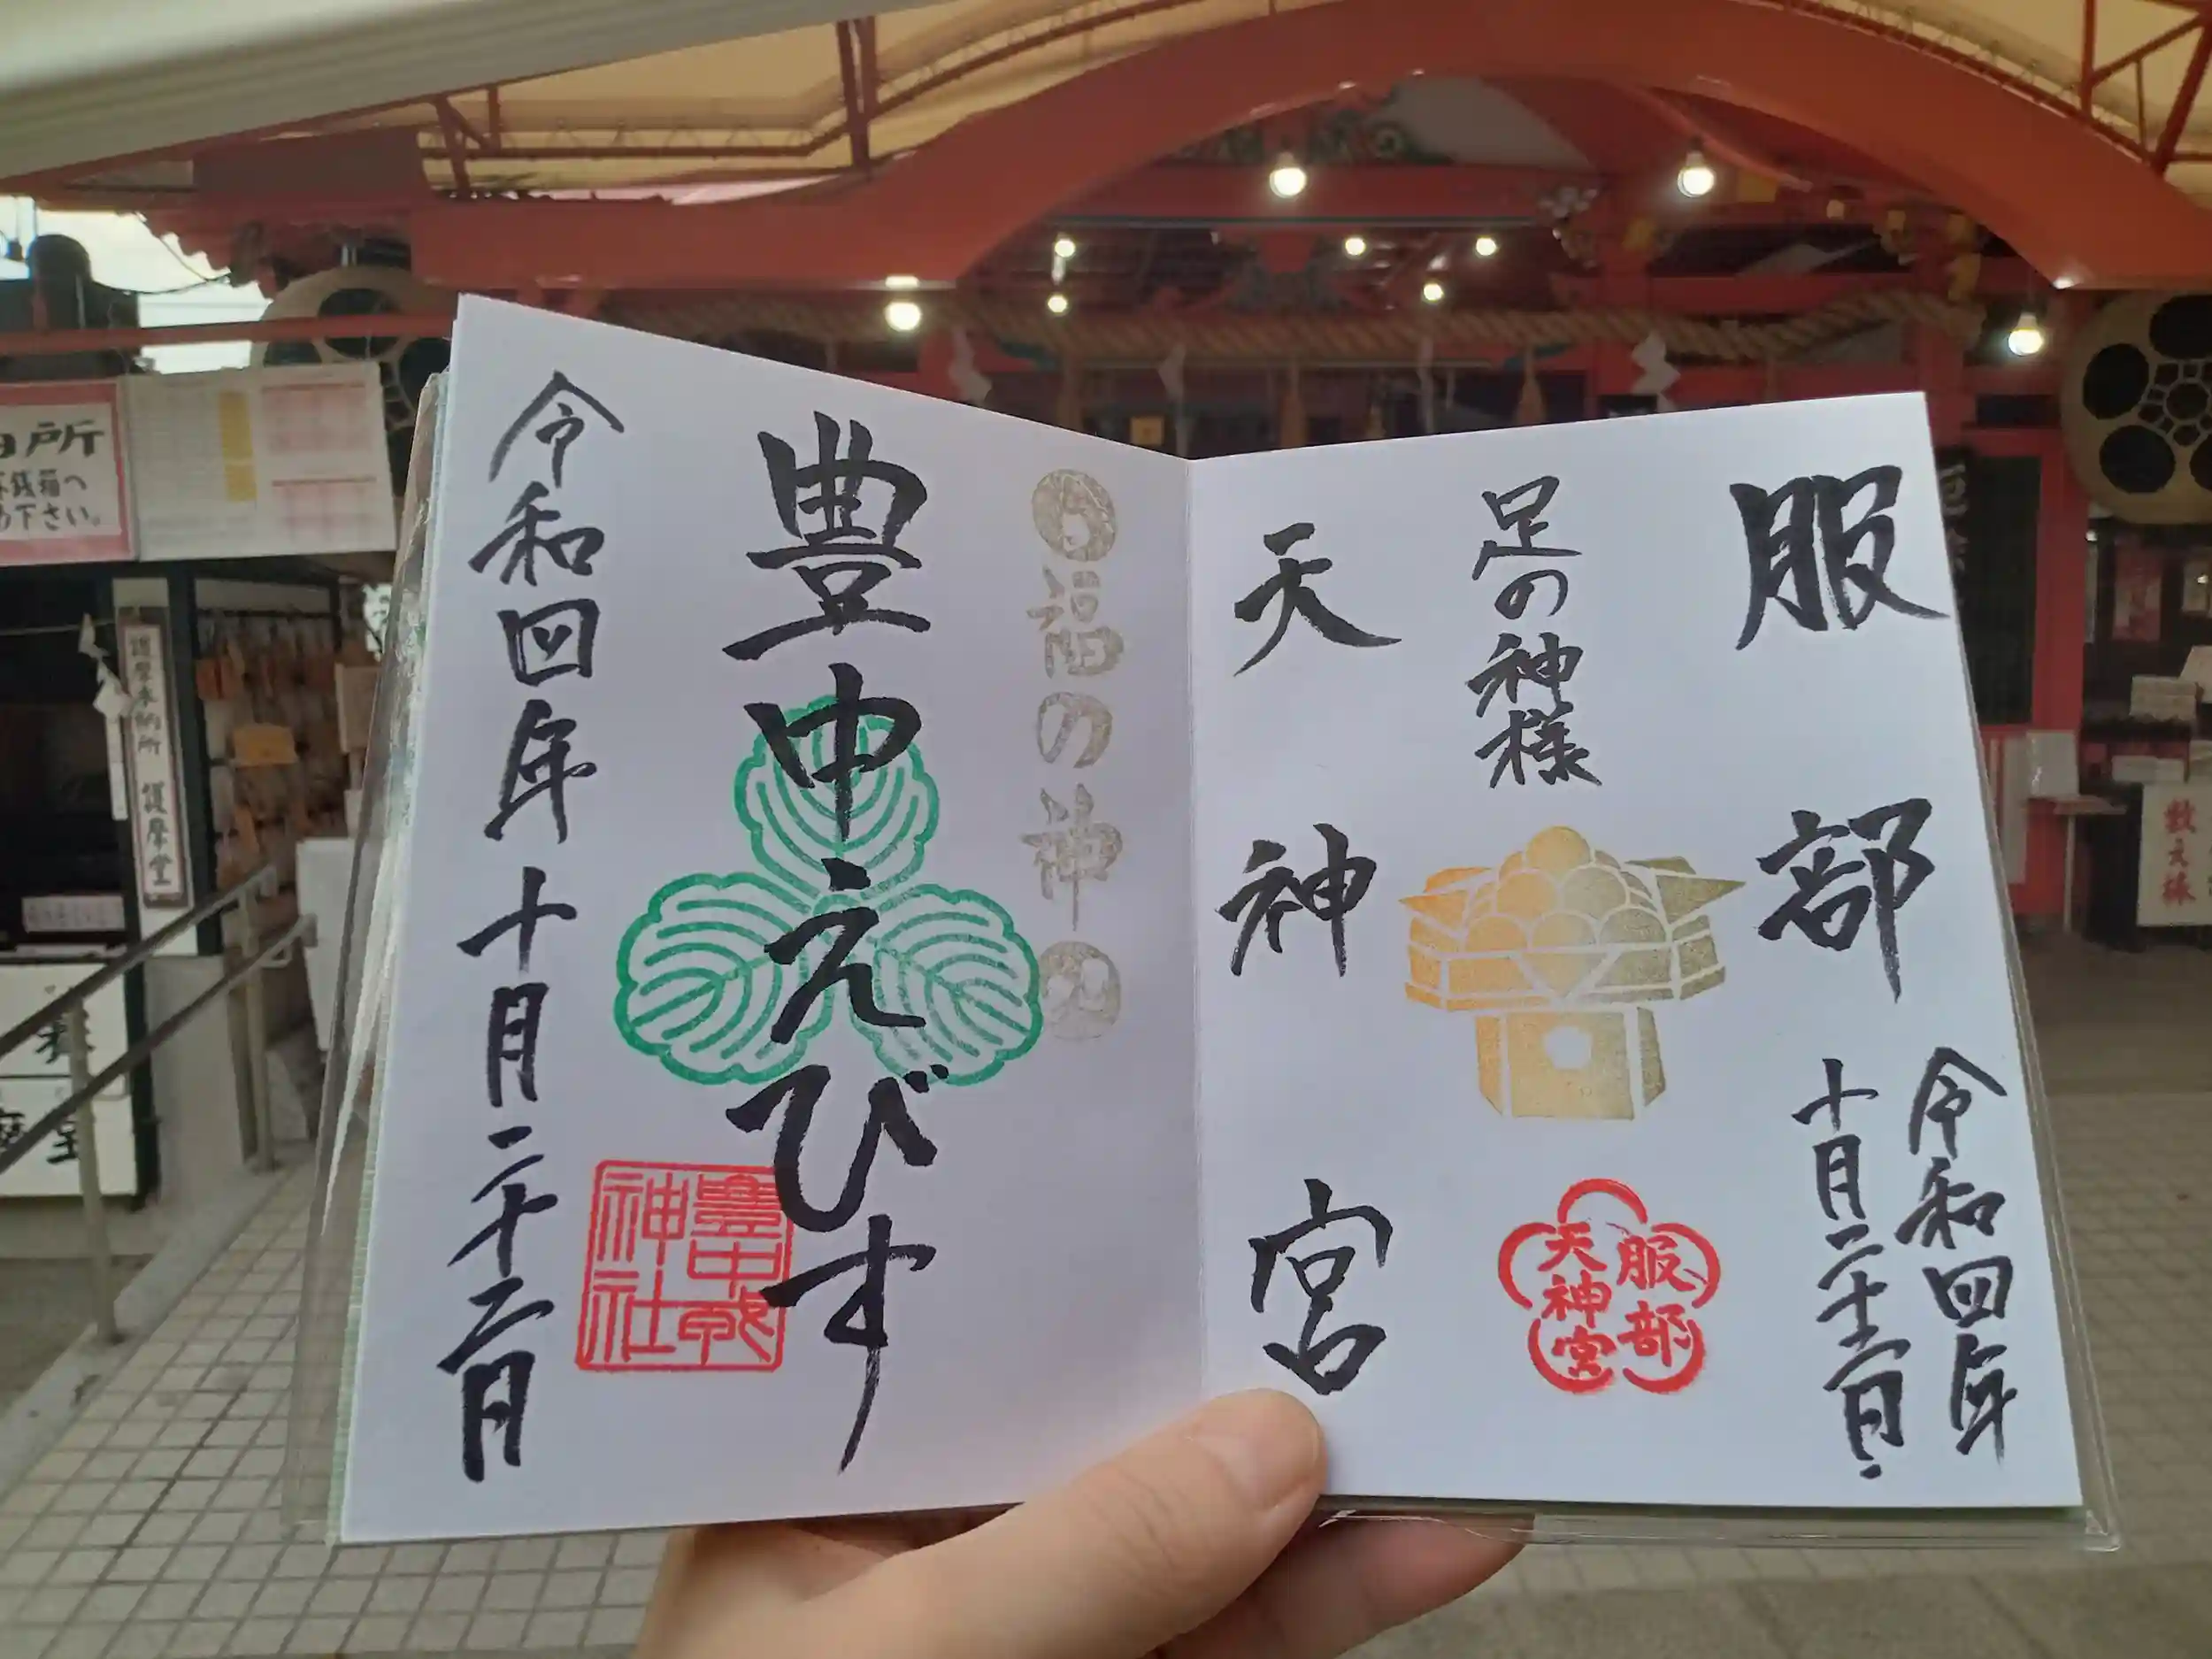 服部
天神宮
足の神様
令和四年
十月二十二日
服部
天神宮
福の神
豊中えびす
豊中戎
神社
令和四年十月二十二日
護摩奉納所 護摩堂
所
銭箱へ
下さい。